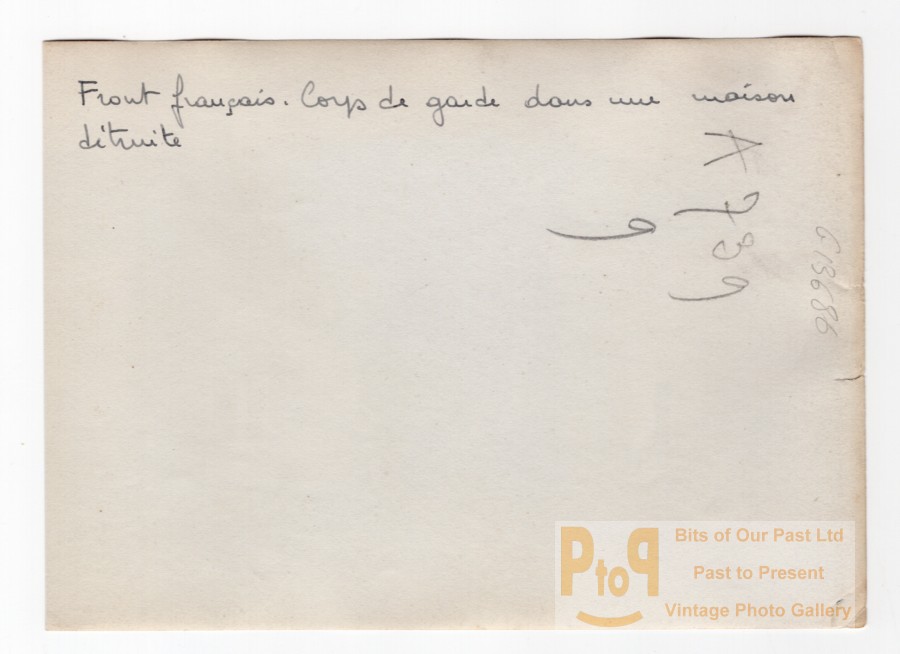 Front français. Corps de garde dans une maison
détruite
A 739
G13686
PtoP
Bits of Our Past Ltd
Past to Present
Vintage Photo Gallery